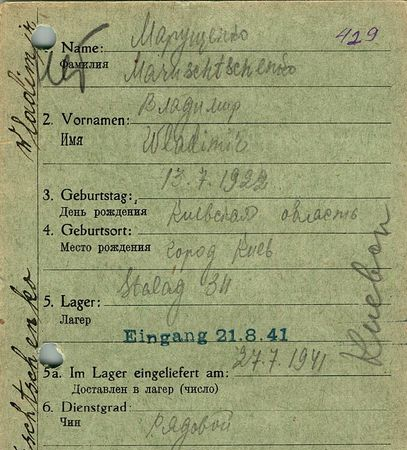 Марущенко
429
1. Name:
Фамилия
Maruschtschenko
Владимир
2. Vornamen:
Имя
Wladimir
13.7.1922
3. Geburtstag:
День рождения
Киевская область
4. Geburtsort:
Место рождения
город Киев
Stalag 34
5. Lager:
Лагерь
Eingang 21.8.41
27.7.1941
5a. Im Lager eingeliefert am:
Доставлен в лагер (число)
6. Dienstgrad:
Чин
Рядовой
Wladimir